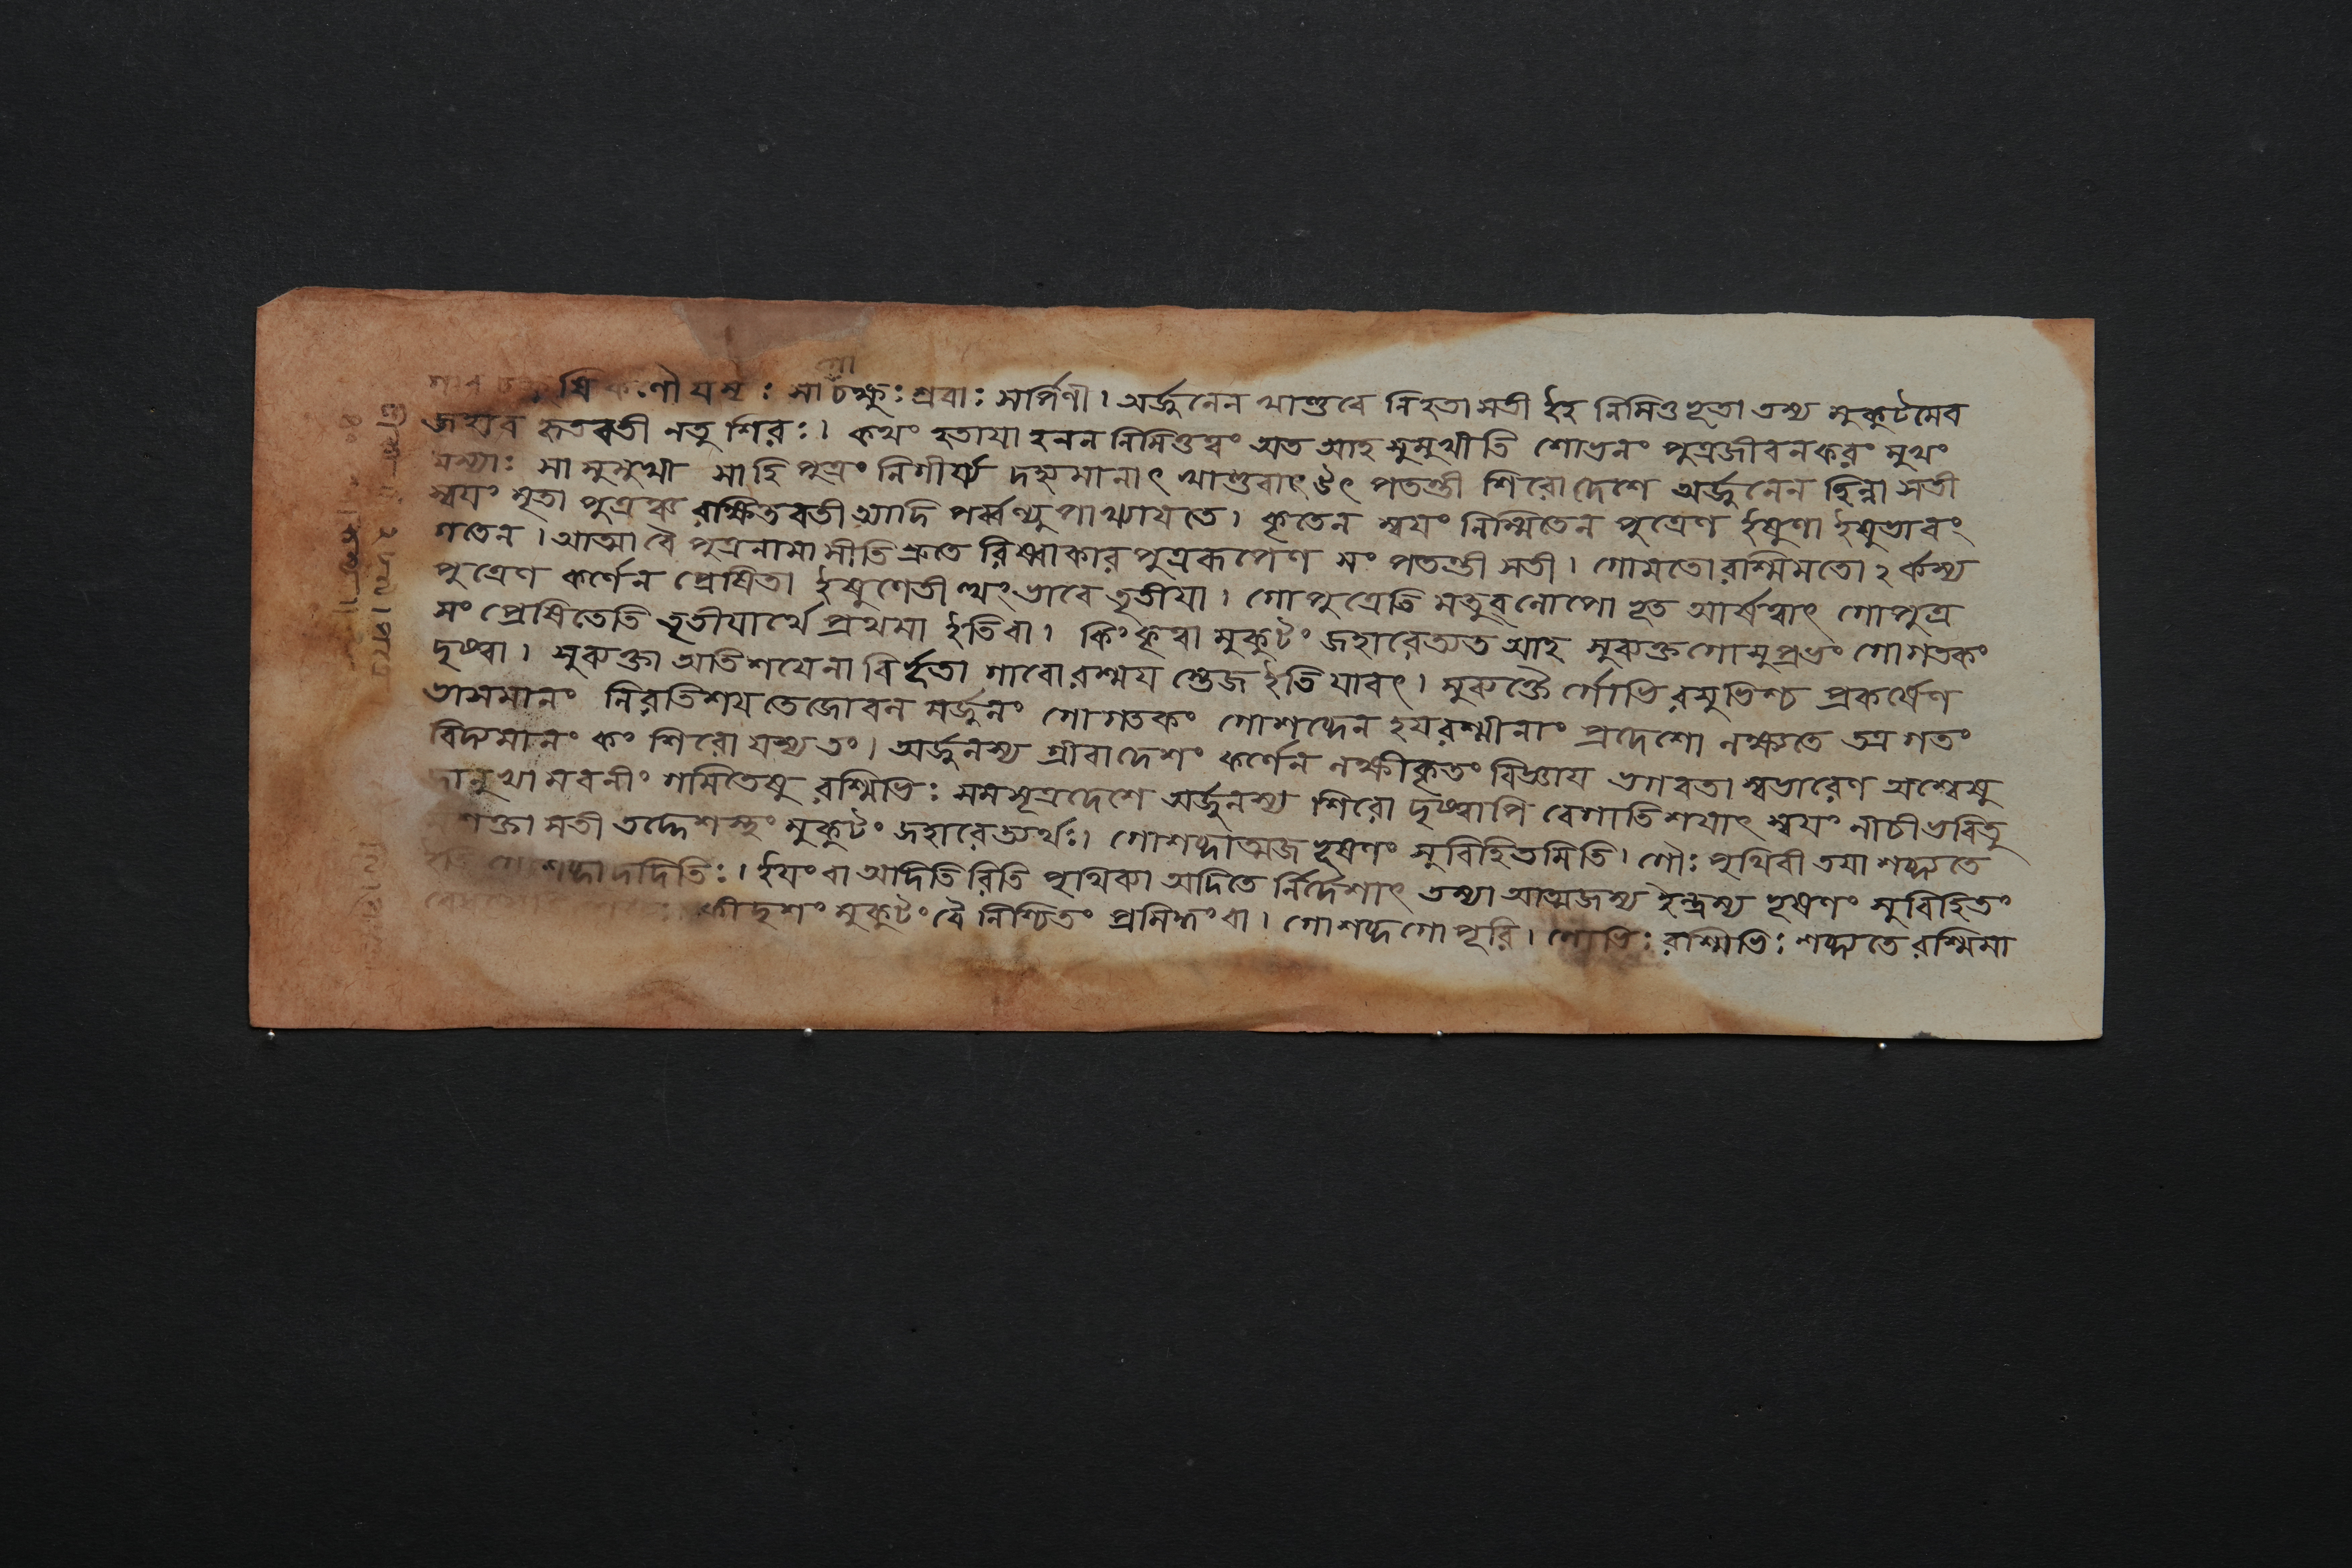 কর্ণৌ যস্যাঃ সা চক্ষুঃশ্রবাঃ সর্পিণী। অর্জুনেন খাণ্ডবে নিহতা সতী ইহ নিমিত্তভূতা তস্য মুকুটমেব
জহার হৃতবতী নতু শিরঃ। কথং হতায়া হনন নিমিত্তত্বং অত আহ সুমুখীতি শোভনং পুত্রজীবনকরং মুখং
যস্যাঃ সা সুমুখী সাহি পুত্রং নিগীর্য্য দহ্যমানাৎ খাণ্ডবাৎ উৎ পতন্তী শিরোদেশে অর্জুনেন ছিন্না সতী
স্বয়ং মৃতা পুত্রঞ্চ রক্ষিতবতী আদি পর্ব্বণ্যুপাখ্যায়তে। কৃতেন স্বয়ং নির্ম্মিতেন পুত্রেণ ইষুণা ইষুভাবং
গতেন। আত্মা বৈ পুত্রনামাসীতি শ্রুতে রিষ্বাকার পুত্ররূপেণ সং পতন্তী সতী। গোমতো রশ্মিমতো ঽর্কস্য
পুত্রেণ কর্ণেন প্রেষিতা ইষুণেতীত্থং ভাবে তৃতীয়া। গোপুত্রেতি মতুব্লোপো হৃত আর্ষত্বাৎ গোপুত্র
সং প্রেষিতেতি তৃতীয়ার্থে প্রথমা ইতি বা। কিং কৃত্বা মুকুটং জহারেত্যত আহ সুব্যক্তগোসুপ্রভং গোগতকং
দৃষ্ট্বা। সুব্যক্তা অতিশয়েনা বির্ভূতা গাবো রশ্ময় স্তেজ ইতি যাবৎ। সুব্যক্তৈ র্গোভি রসুভিশ্চ প্রকর্ষেণ
ভাসমানং নিরতিশয় তেজোবল মর্জুনং গোগতকং গোশব্দেন হয়রশ্মীনাং প্রদেশো লক্ষ্যতে তত্র গতং
বিদ্যমানং কং শিরো যস্য তং। অর্জুনস্য গ্রীবাদেশং কর্ণেন লক্ষীকৃতং বিজ্ঞায় ভগবতা স্বভারেণ অশ্বেষু
জানুভ্যামবনীং গমিতেষু রশ্মিভিঃ সমসূত্রদেশে অর্জুনস্য শিরো দৃষ্ট্বাপি বেগাতিশয়াৎ স্বয়ং নীচীভবিতু
মশক্তা সতী তদ্দেশস্থং মুকুটং জহারেত্যর্থঃ। গোশব্দাত্মজ ভূষণং সুবিহিতমিতি। গৌঃ পৃথিবী তয়া শব্দ্যতে
ইতি গোশব্দাদদিতিঃ। ইয়ং বা অদিতি রিতি পৃথিব্যা অদিতে র্নির্দেশাৎ তস্যা আত্মজস্য ইন্দ্রস্য ভূষণং সুবিহিতং
কীদৃশং মুকুটং বৈ নিশ্চিতং প্রসিদ্ধং বা। গোশব্দগোপূরি। গোভিঃ রশ্মিভিঃ শব্দ্যতে রশ্মিমা